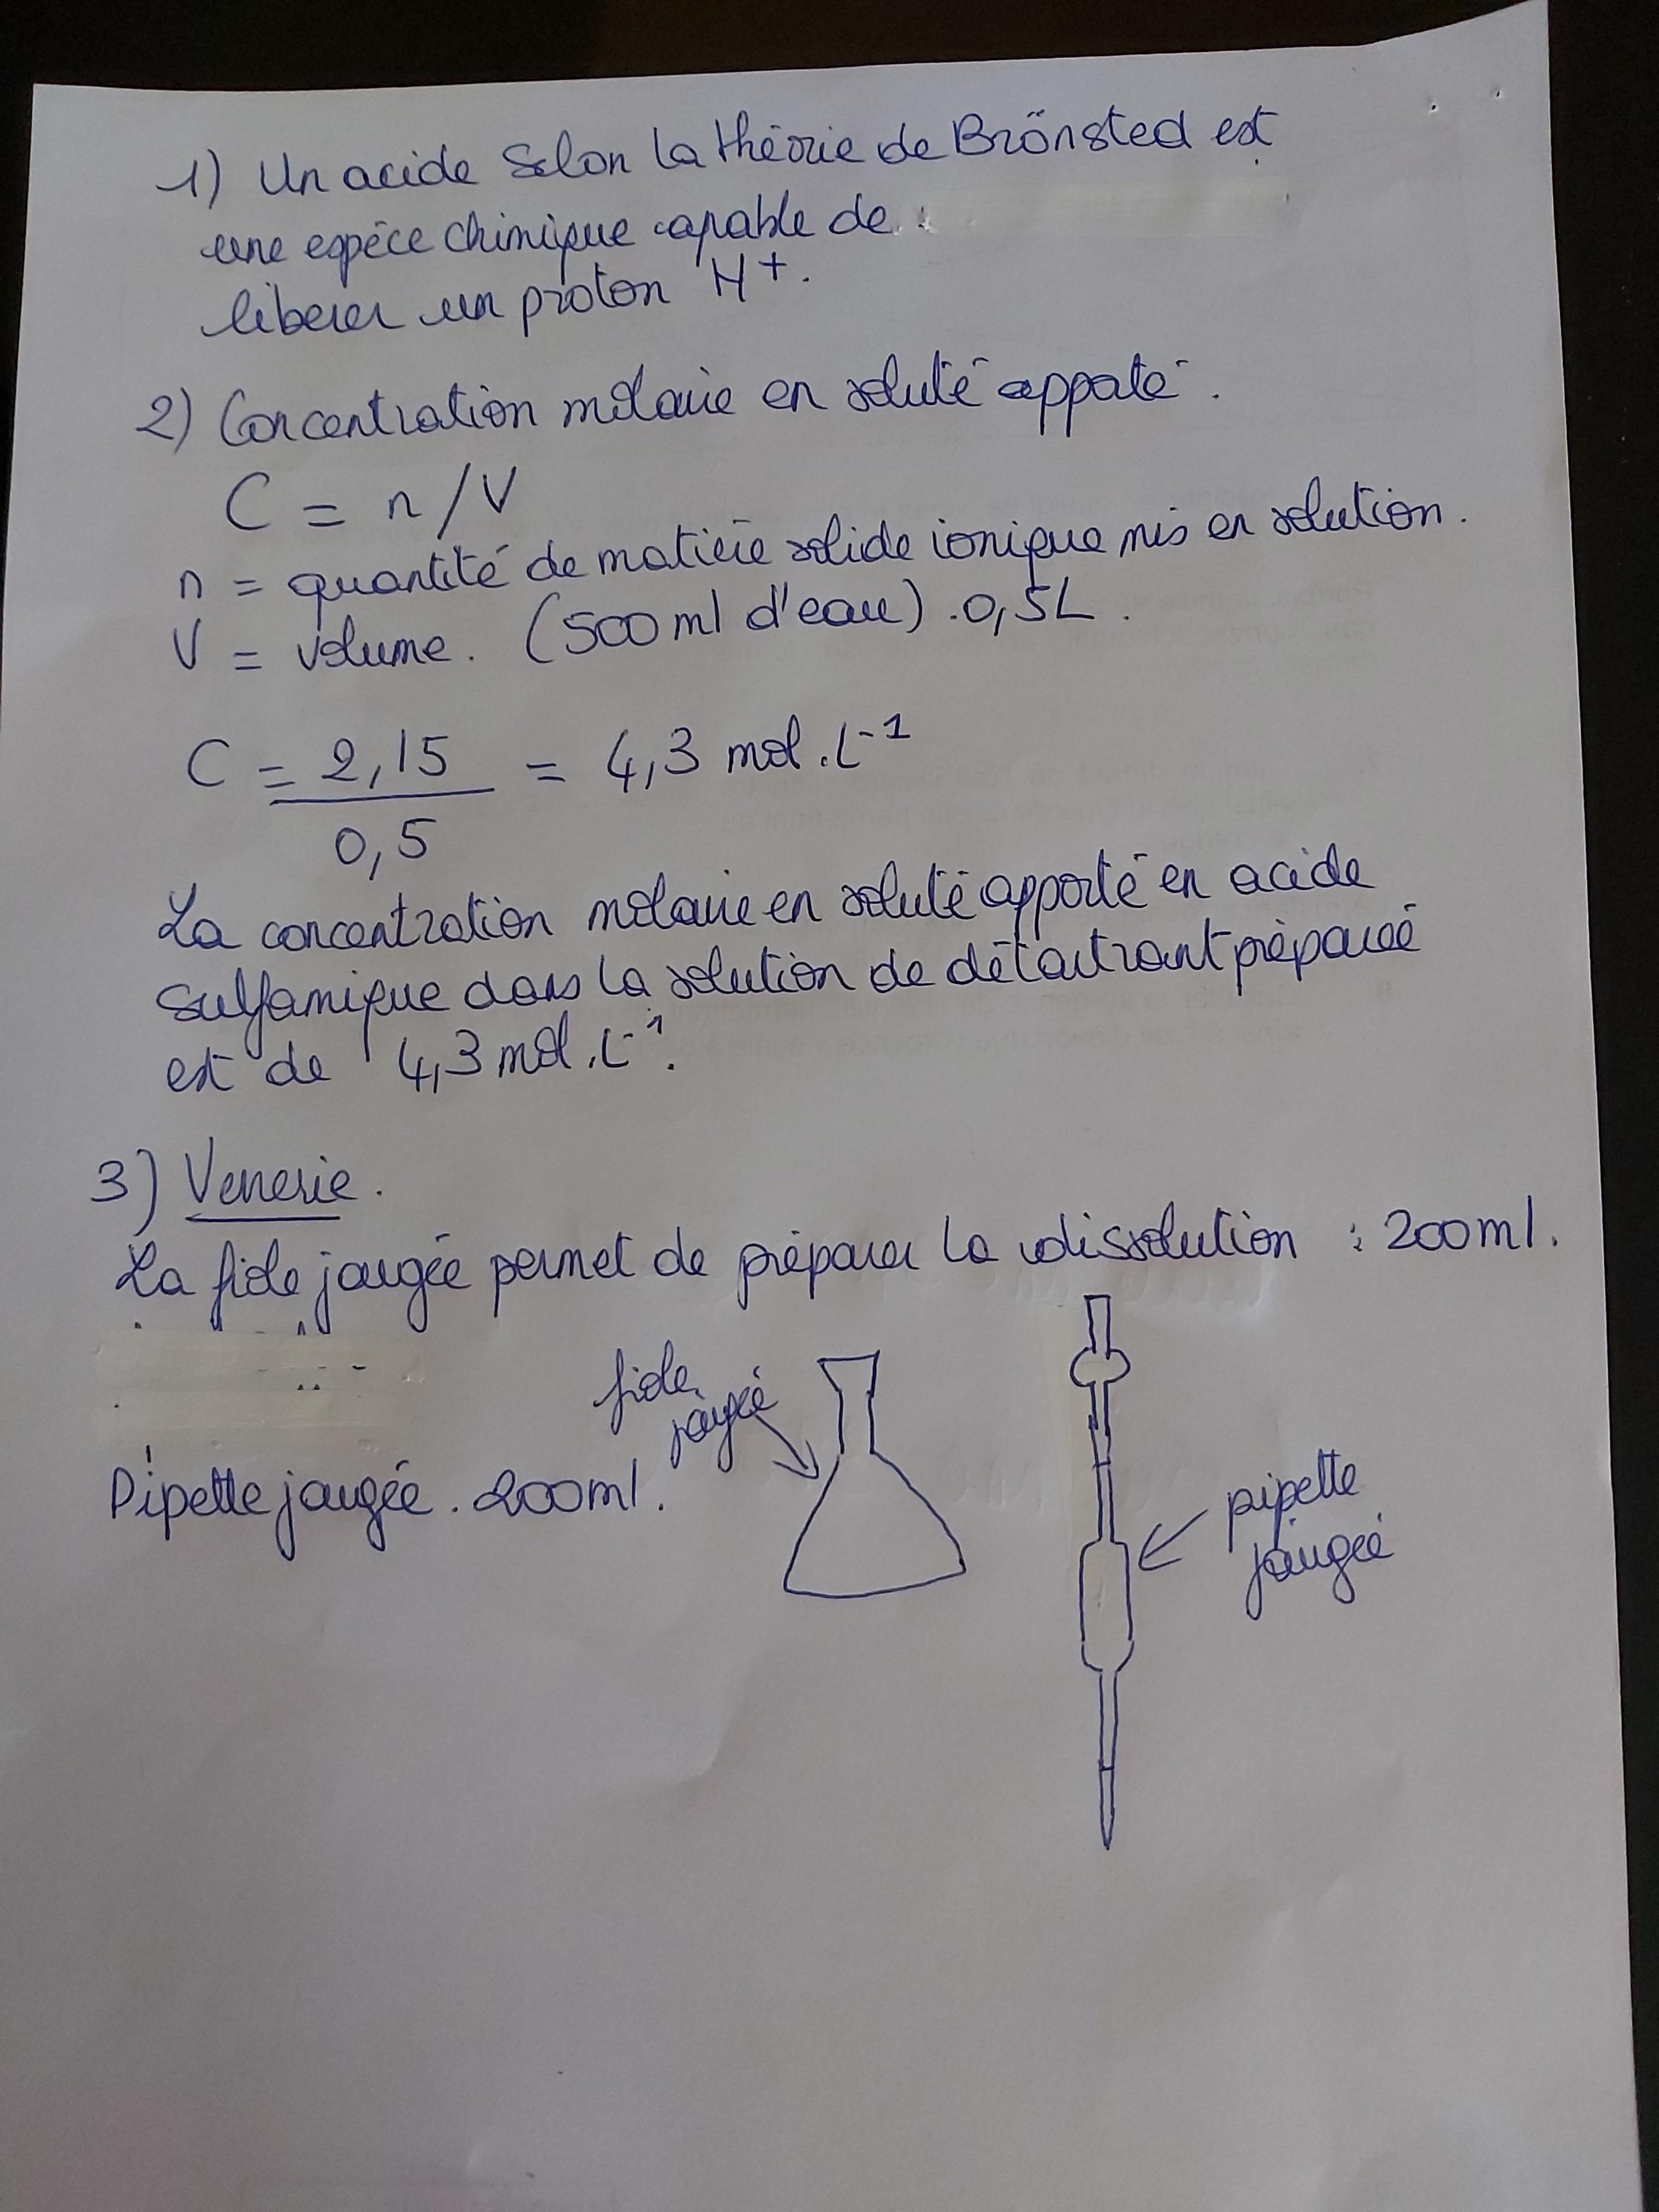 1) Un acide selon la théorie de Brönsted est
une espèce chimique capable de
libérer un proton H+.
2) Concentration molaire en soluté apporté.
C = n/V
n = quantité de matière solide ionique mis en solution.
V = volume. (500 ml d'eau). 0,5L.
C = 2,15 / 0,5 = 4,3 mol.L-1
La concentration molaire en soluté apporté en acide
sulfamique dans la solution de détartrant préparée
est de 4,3 mol.L-1.
3) Verrerie.
La fiole jaugée permet de préparer la dissolution : 200ml.
fiole
jaugée
Pipette jaugée. 200ml.
pipette
jaugée